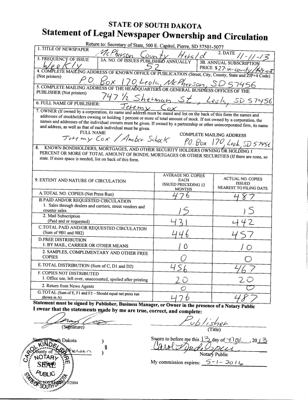 STATE OF SOUTH DAKOTA
Statement of Legal Newspaper Ownership and Circulation
Return to: Secretary of State, 500 E. Capitol, Pierre, SD 57501-5077
1. TITLE OF NEWSPAPER McPherson County Herald 2. DATE 11-11-13
3. FREQUENCY OF ISSUE Weekly 3A. NO. OF ISSUES PUBLISHED ANNUALLY 52 3B. ANNUAL SUBSCRIPTION PRICE
4. COMPLETE MAILING ADDRESS OF KNOWN OFFICE OF PUBLICATION (Street, City, County, State and ZIP+4 Code) (Not printers) PO Box 170 Leola McPherson, SD 57456
5. COMPLETE MAILING ADDRESS OF THE HEADQUARTERS OR GENERAL BUSINESS OFFICES OF THE PUBLISHER (Not printers) 747 1/2 Sherman St Leola, SD 57456
6. FULL NAME OF PUBLISHER: Jeremy Cox
7. OWNER (If owned by a corporation, its name and address must be stated and list on the back of this form the names and addresses of stockholders owning or holding 1 percent or more of total amount of stock. If not owned by a corporation, the names and addresses of the individual owners must be given. If owned by a partnership or other unincorporated firm, its name and address, as well as that of each individual must be given.
FULL NAME COMPLETE MAILING ADDRESS
Jeremy Cox / P.O. Box 170, Leola, SD 57456
8. KNOWN BONDHOLDERS, MORTGAGEES, AND OTHER SECURITY HOLDERS OWNING OR HOLDING 1 PERCENT OR MORE OF TOTAL AMOUNT OF BONDS, MORTGAGES OR OTHER SECURITIES (If there are none, so state. If more space is needed, list on back of this form.
9. EXTENT AND NATURE OF CIRCULATION AVERAGE NO. COPIES EACH ISSUED PRECEDING 12 MONTHS ACTUAL NO. COPIES ISSUED NEAREST TO FILING DATE
A. TOTAL NO. COPIES (Net Press Run) 476 487
B. PAID AND/OR REQUESTED CIRCULATION
1. Sales through dealers and carriers, street vendors and counter sales 15 15
2. Mail Subscription (Paid and/or requested) 431 442
C. TOTAL PAID AND/OR REQUESTED CIRCULATION (Sum of 9B1 and 9B2) 446 457
D. FREE DISTRIBUTION
1. BY MAIL, CARRIER OR OTHER MEANS 10 10
2. SAMPLES, COMPLIMENTARY AND OTHER FREE COPIES 0 0
E. TOTAL DISTRIBUTION (Sum of C, D1 and D2) 456 467
F. COPIES NOT DISTRIBUTED
1. Office use, left over, unaccounted, spoiled after printing 20 20
2. Return from News Agents 0 0
G. TOTAL (Sum of E, F1 and F2 - Should equal net press run shown in A) 476 487
Statement must be signed by Publisher, Business Manager, or Owner in the presence of a Notary Public
I swear that the statements made by me are true, correct, and complete:
Publisher
(Signature) (Title)
State of South Dakota
County of
Sworn to before me this 13 day of 2013
Notary Public
My commission expires: 5-1-2016
CAROL
NOTARY
SEAL
PUBLIC
SOUTH